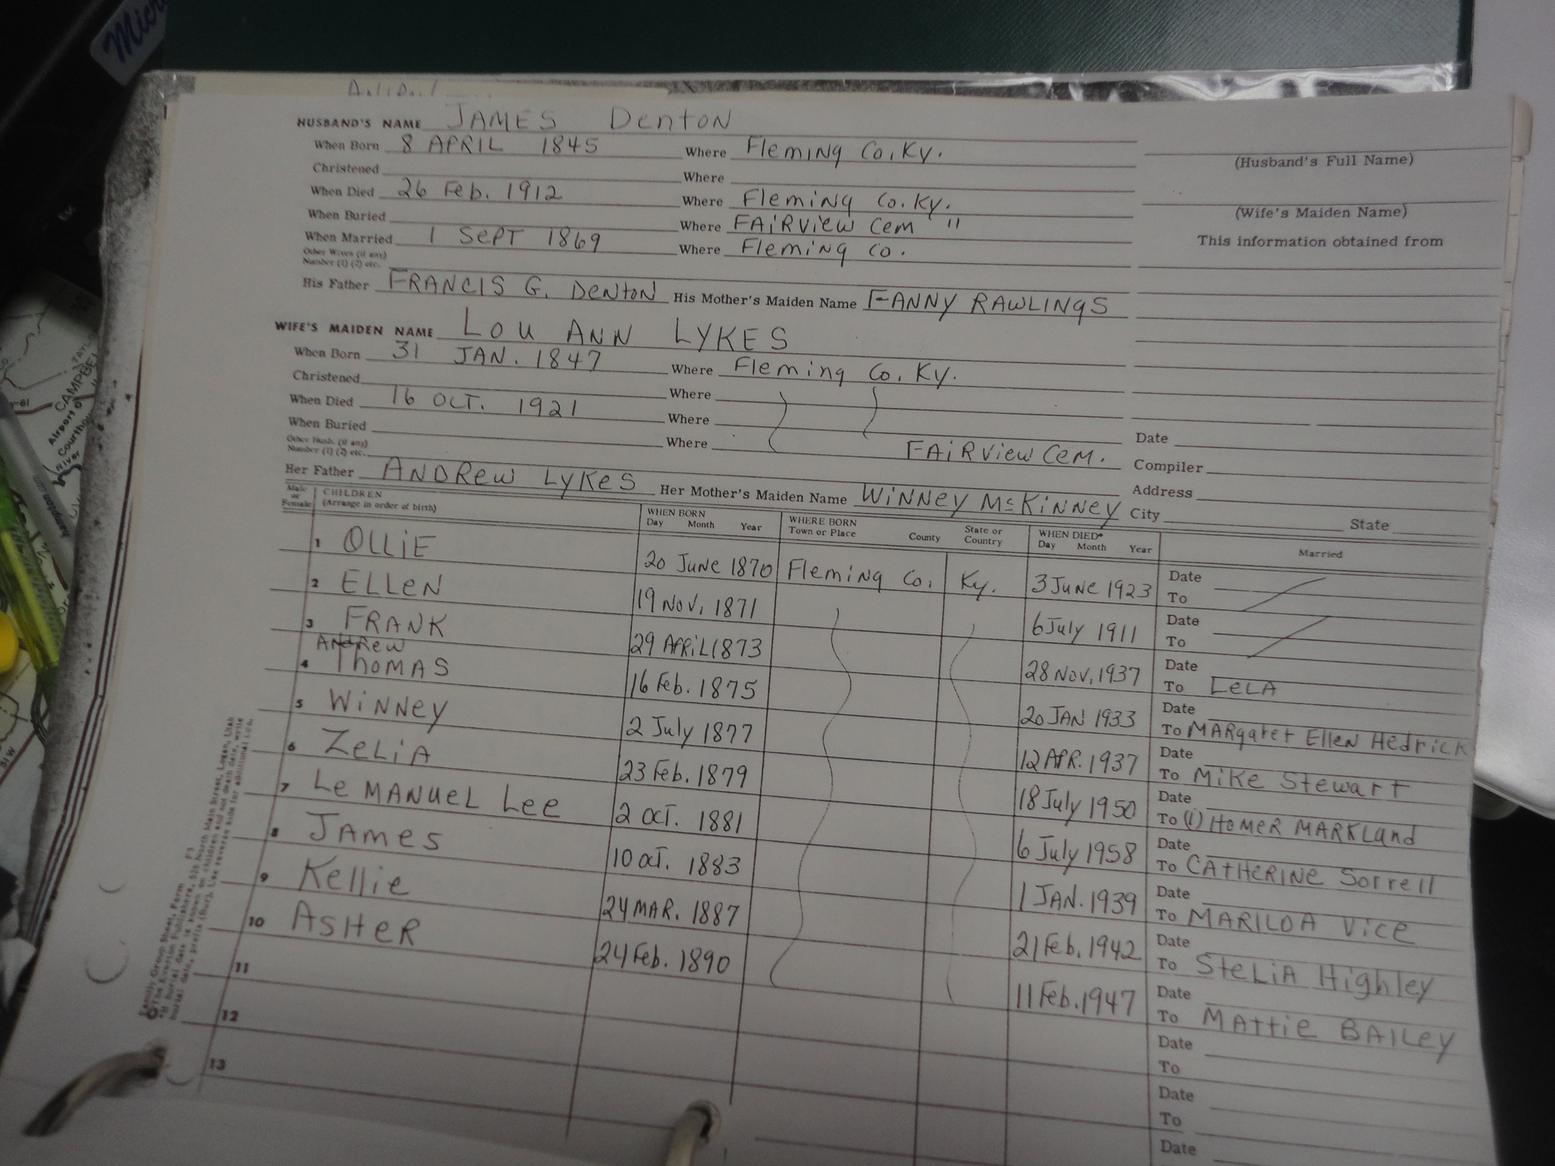 HUSBAND'S NAME JAMES Denton
When Born 8 APRIL 1845 Where Fleming Co. Ky.
(Husband's Full Name)
Christened Where
When Died 26 Feb. 1912 Where Fleming Co. Ky.
(Wife's Maiden Name)
When Buried Where FAIRVIEW Cem "
This information obtained from
When Married 1 SEPT 1869 Where Fleming Co.
Other Wives (if any)
Number (1) (2) etc.
His Father FRANCIS G. DENTON His Mother's Maiden Name FANNY RAWLINGS
WIFE'S MAIDEN NAME LOU ANN LYKES
When Born 31 JAN. 1847 Where Fleming Co. Ky.
Christened Where
When Died 16 OCT. 1921 Where
When Buried Where FAIRVIEW CEM.
Other Husb. (if any)
Number (1) (2) etc.
Date
Compiler
Her Father ANDREW LYKES Her Mother's Maiden Name WINNEY McKINNEY
Address
City State
Male or Female
CHILDREN
(Arrange in order of birth)
WHEN BORN
Day Month Year
WHERE BORN
Town or Place County State or Country
WHEN DIED*
Day Month Year
Married
1 OLLIE 20 June 1870 Fleming Co. Ky. 3 June 1923 Date
To
2 ELLEN 19 Nov, 1871 6 July 1911 Date
To
3 FRANK 29 APRIL 1873 28 Nov, 1937 Date
To LELA
Andrew
4 THOMAS 16 Feb. 1875 20 JAN 1933 Date
To MARgaret Ellen Hedrick
5 WINNEY 2 July 1877 12 APR. 1937 Date
To Mike Stewart
6 ZELIA 23 Feb. 1879 18 July 1950 Date
To (1) HOMER MARKLAND
7 Le MANUEL Lee 2 OCT. 1881 6 July 1958 Date
To CATHERINE Sorrell
8 JAMES 10 OCT. 1883 1 JAN. 1939 Date
To MARILDA Vice
9 Kellie 24 MAR. 1887 21 Feb. 1942 Date
To STELIA Highley
10 ASHER 24 Feb. 1890 11 Feb. 1947 Date
To MATTIE BAILEY
11 Date
To
12 Date
To
13 Date